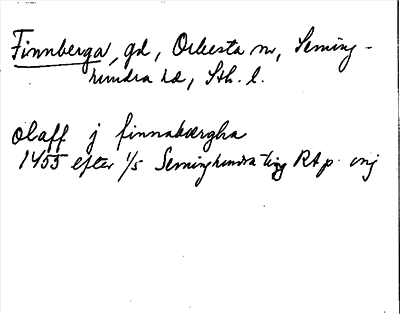 Finnberga, gd, Orkesta sn, Seming-
hundra hd, Sth. l.
olaff j finnabærgha
1455 efter 1/5 Seminghundra ting RAp